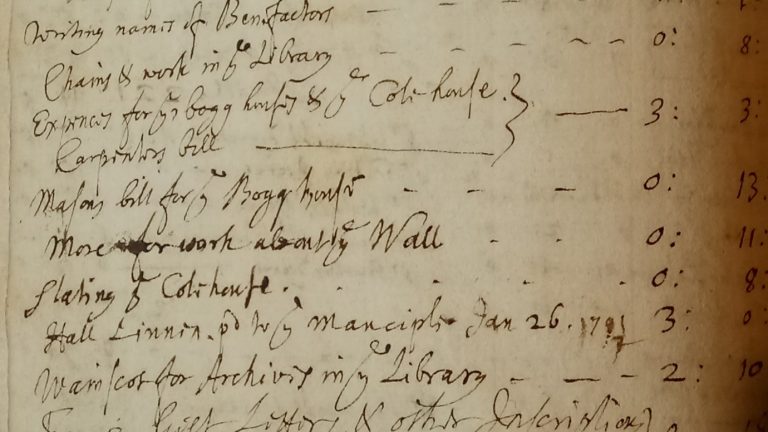 Writing names of Benefactors — — — —
Chains & work in yͤ Library — — — — 0: 8:
Expences for yͤ bogg houses & yͤ Cole-house. } — 3: 3:
Carpenters bill —
Masons bill for yͤ Bogg house — — — 0: 13
More for work about yͤ Wall - - 0: 11:
slating yͤ Colehouse. . . . . . 0: 8:
Hall Linnen. pd to yͤ Manciple Jan 26. 3: 0:
Wainscot for Archives in yͤ Library — — - 2: 10
Letters & other Inscriptions